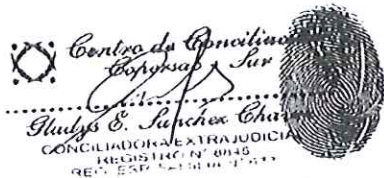 Centro de Concilia
Coporsap Sur
Gladys E. Sanchez Cha
CONCILIADORA EXTRAJUDICIA
REGISTRO N° 8845
REG. ESP.